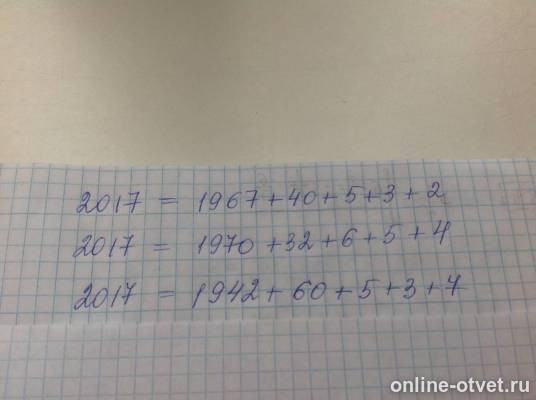 2017 = 1967+40+5+3+2
2017 = 1970+32+6+5+4
2017 = 1942+60+5+3+7
online-otvet.ru